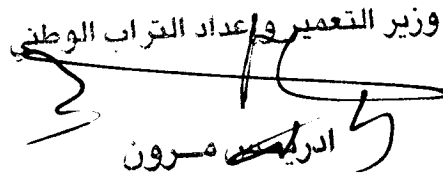 وزير التعمير وإعداد التراب الوطني
ادريس مرون